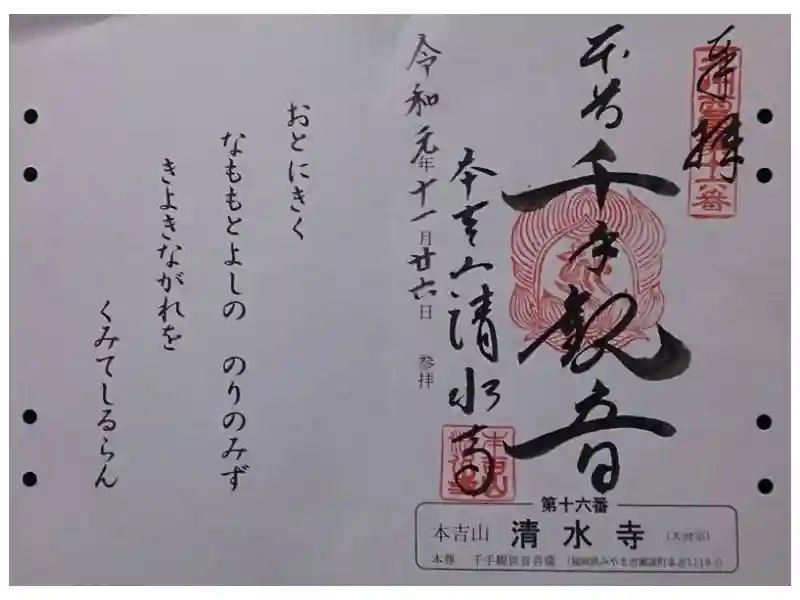 奉拝
本尊
千手観音
本吉山清水寺
令和元年十一月廿六日 参拝
第十六番
本吉山 清水寺 (天台宗)
本尊 千手観世音菩薩
おとにきく
なももとよしの のりのみず
きよきながれを
くみてしるらん